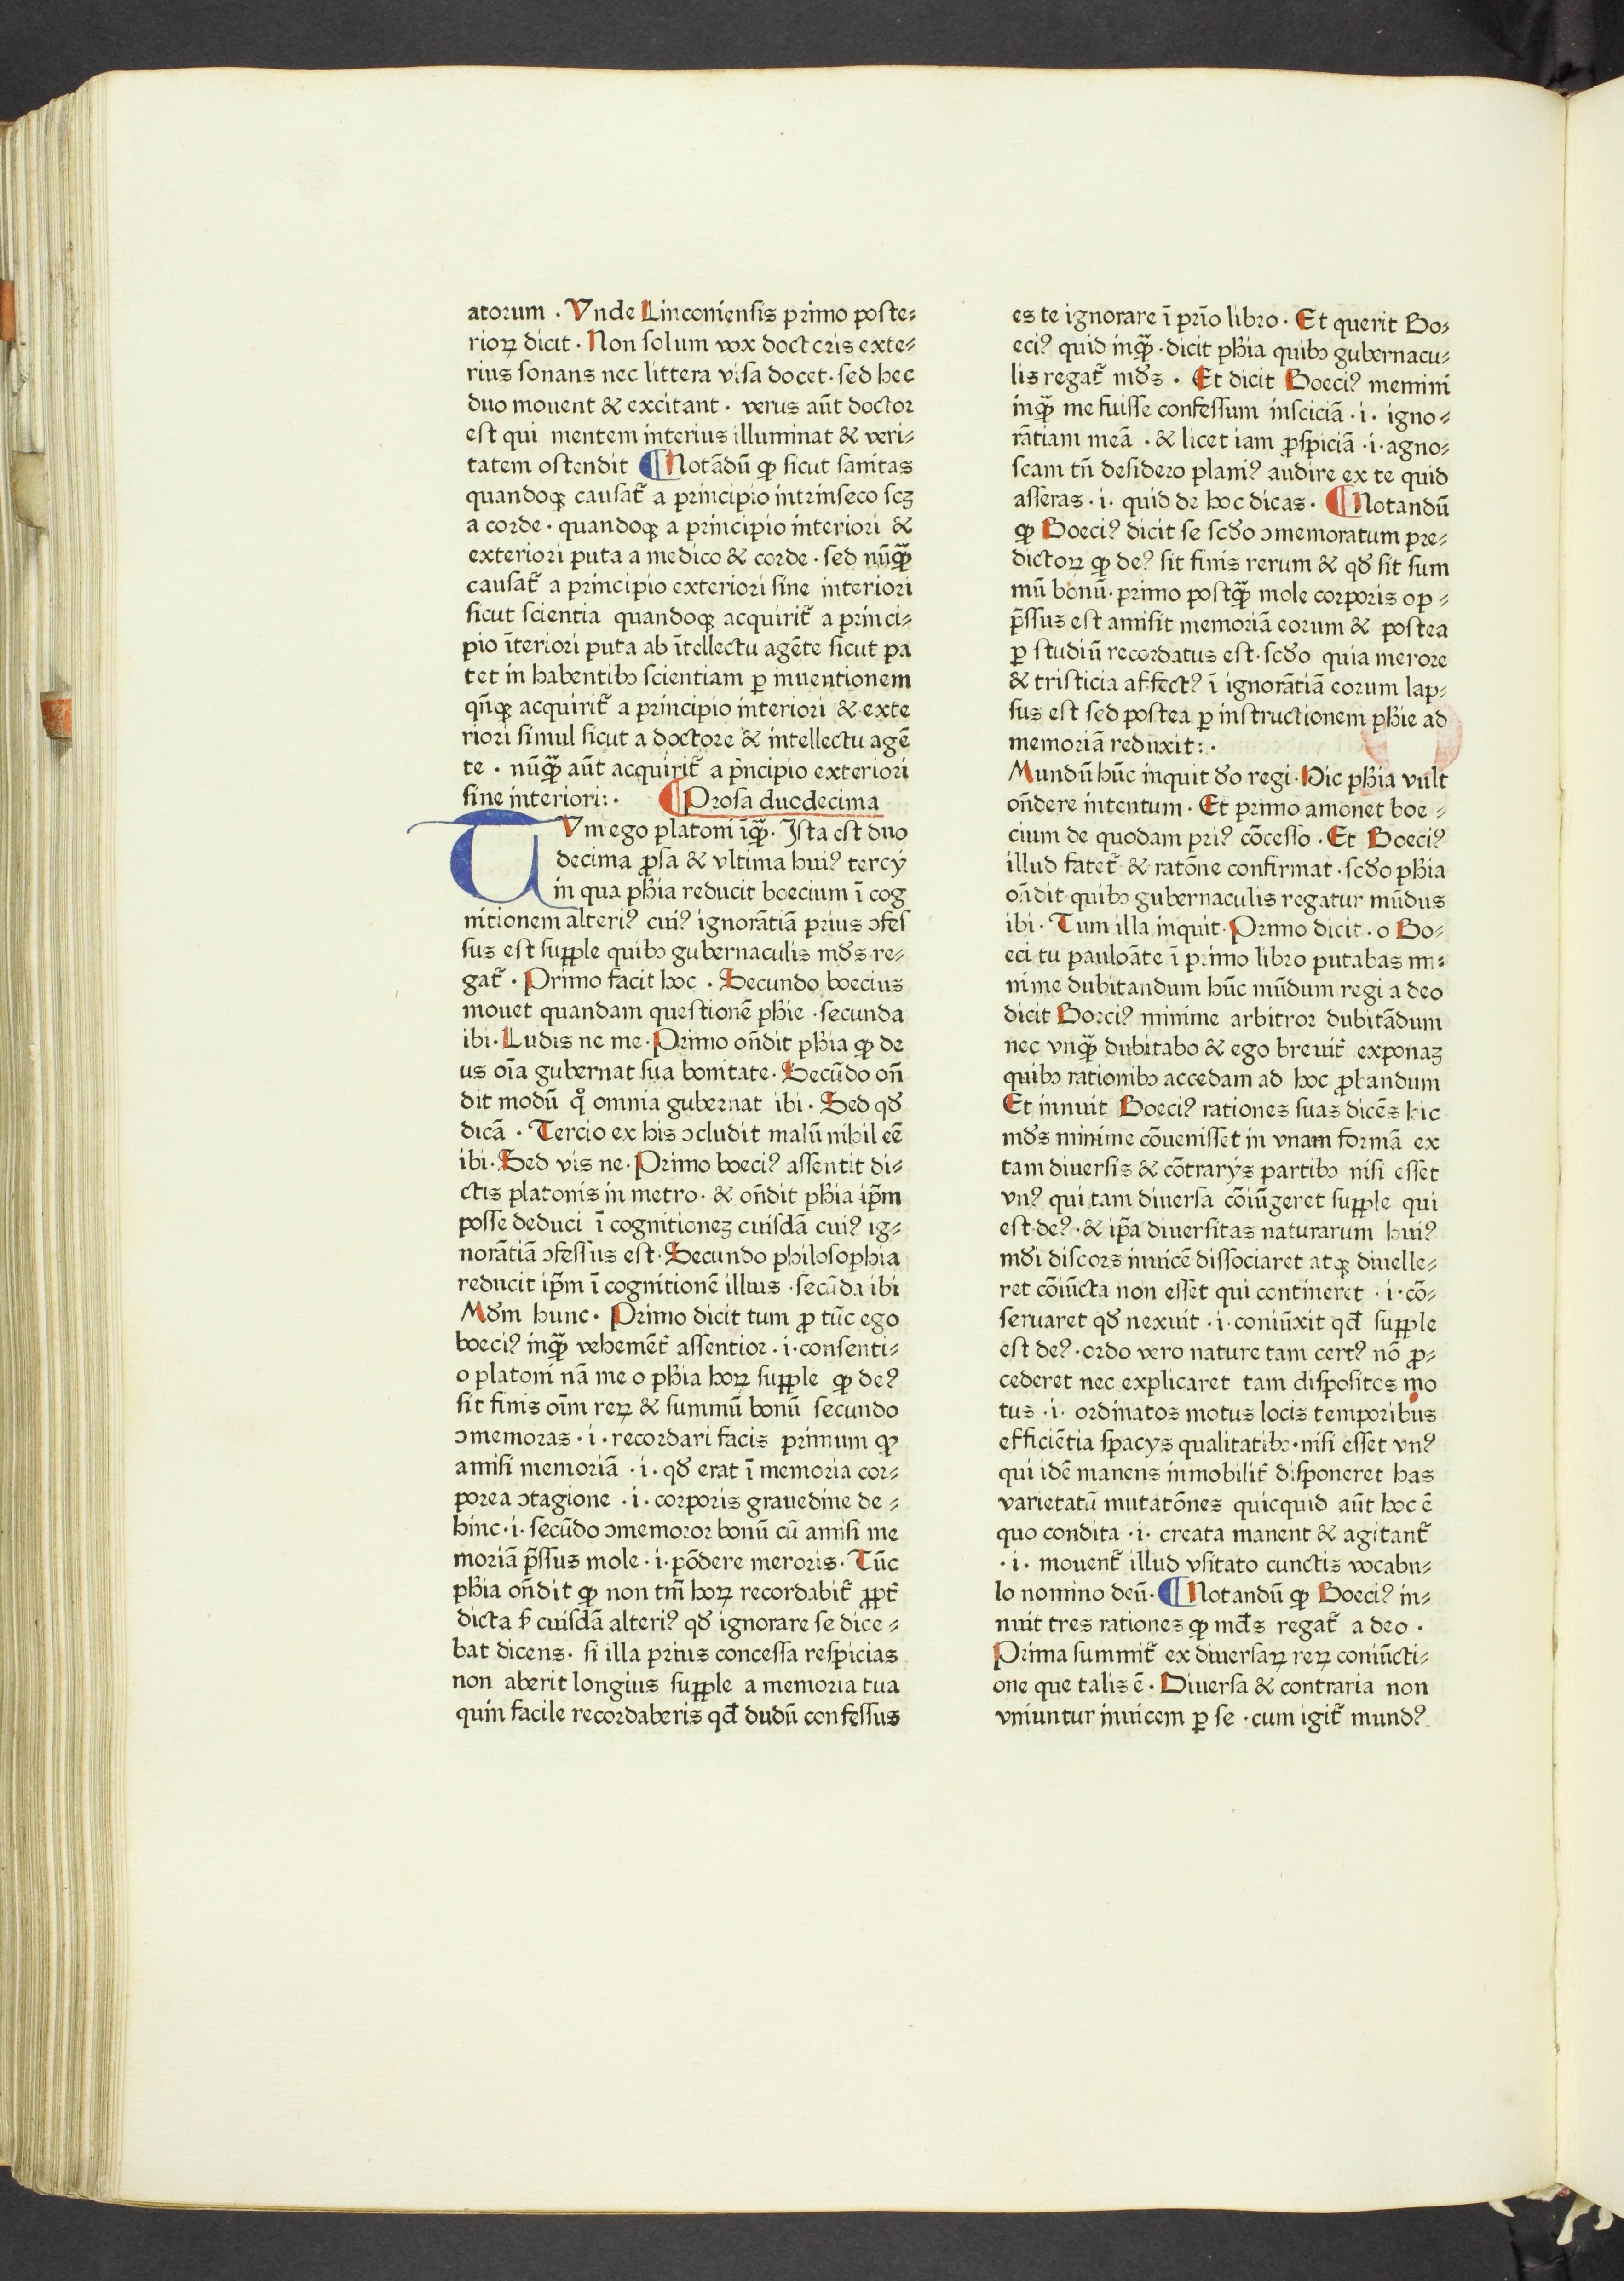 atorum · Vnde Linconiensis primo poste⸗
rioꝝ dicit · Non solum vox doctoris exte⸗
rius sonans nec littera visa docet · sed hec
duo mouent & excitant · verus aūt doctor
est qui mentem interius illuminat & veri⸗
tatem ostendit ¶ Notādū ꝙ sicut sanitas
quandoqꝫ causat᷑ a principio intrinseco scꝫ
a corde · quandoqꝫ a principio interiori &
exteriori puta a medico & corde · sed nūqᷓꝫ
causat᷑ a principio exteriori sine interiori
sicut scientia quandoqꝫ acquirit᷑ a princi⸗
pio īteriori puta ab ītellectu agēte sicut pa
tet in habentibꝰ scientiam ꝑ inuentionem
qn̄qꝫ acquirit᷑ a principio interiori & exte
riori simul sicut a doctore & intellectu agē
te · nūqᷓꝫ aūt acquirit᷑ a pͥncipio exteriori
sine interiori: · ¶ Prosa duodecima
TVm ego platoni īqᷓꝫ · Ista est duo
decima ꝓsa & vltima huiꝰ tercij
in qua pħia reducit boecium ī cog
nitionem alteriꝰ cuiꝰ ignorātiā prius ↄfes
sus est supple quibꝰ gubernaculis mūdꝰ re⸗
gat᷑ · Primo facit hoc · Secundo boecius
mouet quandam questionē pħie · secunda
ibi · Ludis ne me · Primo on̄dit pħia ꝙ de
us oīa gubernat sua bonitate · Secūdo on̄
dit modū qͦ omnia gubernat ibi · Sed qđ
dicā · Tercio ex his ↄcludit malū nihil eē
ibi · Sed vis ne · Primo boeciꝰ assentit di⸗
ctis platonis in metro · & on̄dit pħia ip̄m
posse deduci ī cognitioneꝫ cuiusdā cuiꝰ ig⸗
norātiā ↄfessus est · Secundo philosophia
reducit ip̄m ī cognitionē illius · secūda ibi
Mđm hunc · Primo dicit tum ꝓ tūc ego
boeciꝰ inqᷓꝫ vehemēt᷑ assentior · i · consenti⸗
o platoni nā me o pħia hoꝝ supple ꝙ deꝰ
sit finis oīm reꝝ & summū bonū secundo
ↄmemoras · i · recordari facis primum ꝙ
amisi memoriā · i · qđ erat ī memoria cor⸗
porea ↄtagione · i · corporis grauedine de⸗
hinc · i · secūdo ↄmemoror bonū cū amisi me
moriā p̄ssus mole · i · pōdere meroris · Tūc
pħia on̄dit ꝙ non tm̄ hoꝝ recordabit᷑ ꝓpt᷑
dicta sꝫ cuiusdā alteriꝰ qđ ignorare se dice⸗
bat dicens · si illa prius concessa respicias
non aberit longius supple a memoria tua
quin facile recordaberis qđ dudū confessus
es te ignorare ī prīo libro · Et querit Bo⸗
eciꝰ quid inqᷓꝫ · dicit pħia quibꝰ gubernacu⸗
lis regat᷑ mđs · Et dicit Boeciꝰ memini
inqᷓꝫ me fuisse confessum insciciā · i · igno⸗
rātiam meā · & licet iam ꝓspiciā · i · agno⸗
scam tn̄ desidero planiꝰ audire ex te quid
asseras · i · quid de hoc dicas · ¶ Notandū
ꝙ Boeciꝰ dicit se scđo ↄmemoratum pre⸗
dictoꝝ ꝙ deꝰ sit finis rerum & qđ sit sum
mū bonū · primo postqᷓꝫ mole corporis op⸗
p̄ssus est amisit memoriā eorum & postea
ꝑ studiū recordatus est · scđo quia merore
& tristicia affectꝰ ī ignorātiā eorum lap⸗
sus est sed postea ꝑ instructionem pħie ad
memoriā reduxit: ·
Mundū hūc inquit đo regi · Hic pħia vult
on̄dere intentum · Et primo amonet boe⸗
cium de quodam priꝰ cōcesso · Et Boeciꝰ
illud fatet᷑ & ratōne confirmat · scđo pħia
on̄dit quibꝰ gubernaculis regatur mūdus
ibi · Tum illa inquit · Primo dicit · o Bo⸗
eci tu pauloāte ī primo libro putabas mi⸗
nime dubitandum hūc mūdum regi a deo
dicit Boeciꝰ minime arbitror dubitādum
nec vnqᷓꝫ dubitabo & ego breuit᷑ exponaꝫ
quibꝰ rationibꝰ accedam ad hoc ꝓbandum
Et innuit Boeciꝰ rationes suas dicēs hic
mđs minime cōuenisset in vnam formā ex
tam diuersis & cōtrarijs partibꝰ nisi esset
vnꝰ qui tam diuersa cōiūgeret supple qui
est deꝰ · & ip̄a diuersitas naturarum huiꝰ
mđi discors inuicē dissociaret atqꝫ diuelle⸗
ret cōiūcta non esset qui contineret · i · cō⸗
seruaret qđ nexuit · i · coniūxit qđ supple
est deꝰ · ordo vero nature tam certꝰ nō ꝓ⸗
cederet nec explicaret tam dispositos mo
tus · i · ordinatos motus locis temporibus
efficiētia spacijs qualitatibꝰ · nisi esset vnꝰ
qui idē manens inmobilit᷑ disponeret has
varietatū mutatōnes quicquid aūt hoc ē
quo condita · i · creata manent & agitant᷑
· i · mouent᷑ illud vsitato cunctis vocabu⸗
lo nomino deū · ¶ Notandū ꝙ Boeciꝰ in⸗
nuit tres rationes ꝙ mđs regat᷑ a deo ·
Prima summit᷑ ex diuersaꝝ reꝝ coniūcti⸗
one que talis ē · Diuersa & contraria non
vniuntur inuicem ꝑ se · cum igit᷑ mundꝰ